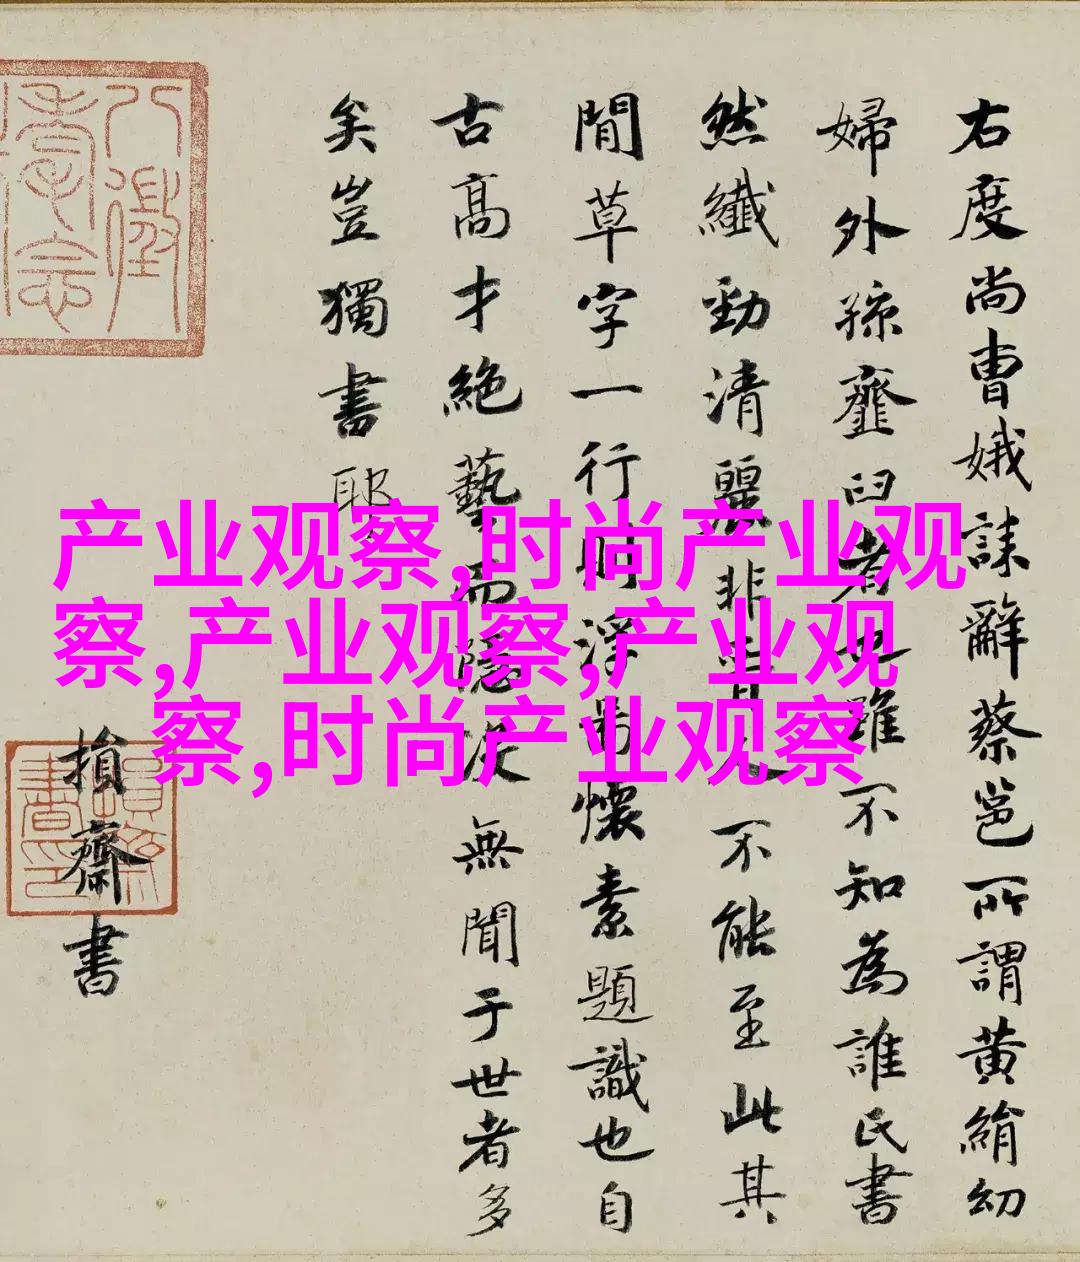 右度尚曹娥誄辭蔡邕所謂黄絹幼
婦外孫虀臼者雖不知為誰氏書
然纖勁清麗非不能至此其
閒草字一行則浮懷素題識也自
古高才絕藝而隱没無聞于世者多
矣豈獨書耶
損齋書
产业观察,时尚产业观
察,产业观察,产业观
察,时尚产业观察